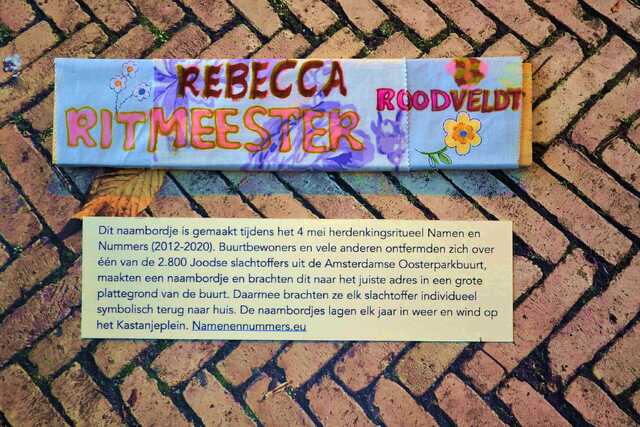 REBECCA
RITMEESTER
ROODVELDT
Dit naambordje is gemaakt tijdens het 4 mei herdenkingsritueel Namen en
Nummers (2012-2020). Buurtbewoners en vele anderen ontfermden zich over
één van de 2.800 Joodse slachtoffers uit de Amsterdamse Oosterparkbuurt,
maakten een naambordje en brachten dit naar het juiste adres in een grote
plattegrond van de buurt. Daarmee brachten ze elk slachtoffer individueel
symbolisch terug naar huis. De naambordjes lagen elk jaar in weer en wind op
het Kastanjeplein. Namenennummers.eu